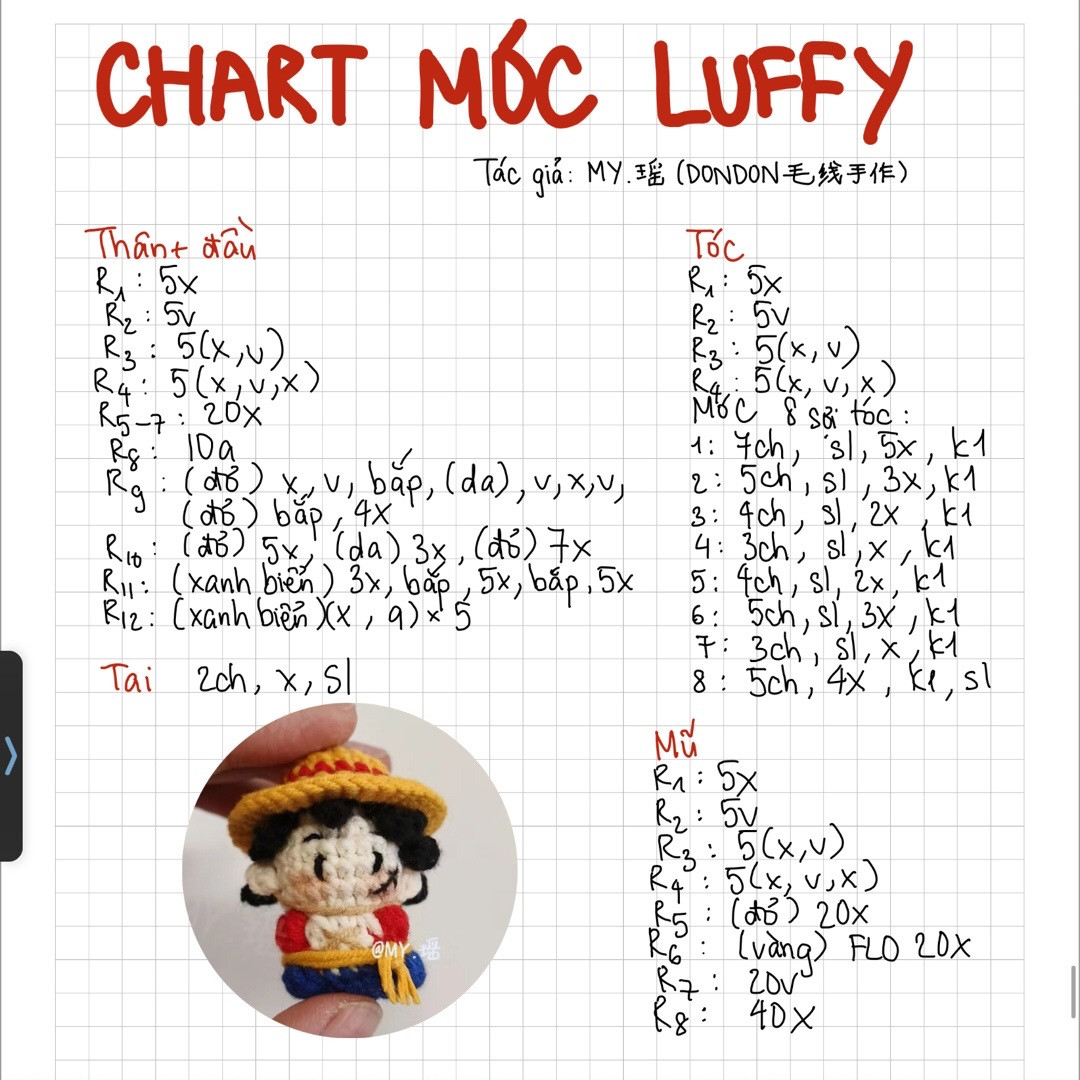 CHART MÓC LUFFY
Tác giả: MY.瑶 (DONDON毛线手作)
Thân + đầu
R1: 5x
R2: 5v
R3: 5(x,v)
R4: 5(x,v,x)
R5-7: 20x
R8: 10a
R9: (đỏ) x, v, bắp, (da), v,x,v,
(đỏ) bắp, 4x
R10: (đỏ) 5x, (da) 3x, (đỏ) 7x
R11: (xanh biển) 3x, bắp, 5x, bắp, 5x
R12: (xanh biển)(x, a) × 5
Tai 2ch, x, sl
@MY 瑶
Tóc
R1: 5x
R2: 5v
R3: 5(x, v)
R4: 5(x, v, x)
Móc 8 sợi tóc:
1: 7ch, sl, 5x, k1
2: 5ch, sl, 3x, k1
3: 4ch, sl, 2x, k1
4: 3ch, sl, x, k1
5: 4ch, sl, 2x, k1
6: 5ch, sl, 3x, k1
7: 3ch, sl, x, k1
8: 5ch, 4x, k1, sl
Mũ
R1: 5x
R2: 5v
R3: 5(x,v)
R4: 5(x, v, x)
R5: (đỏ) 20x
R6: (vàng) FLO 20x
R7: 20v
R8: 40x